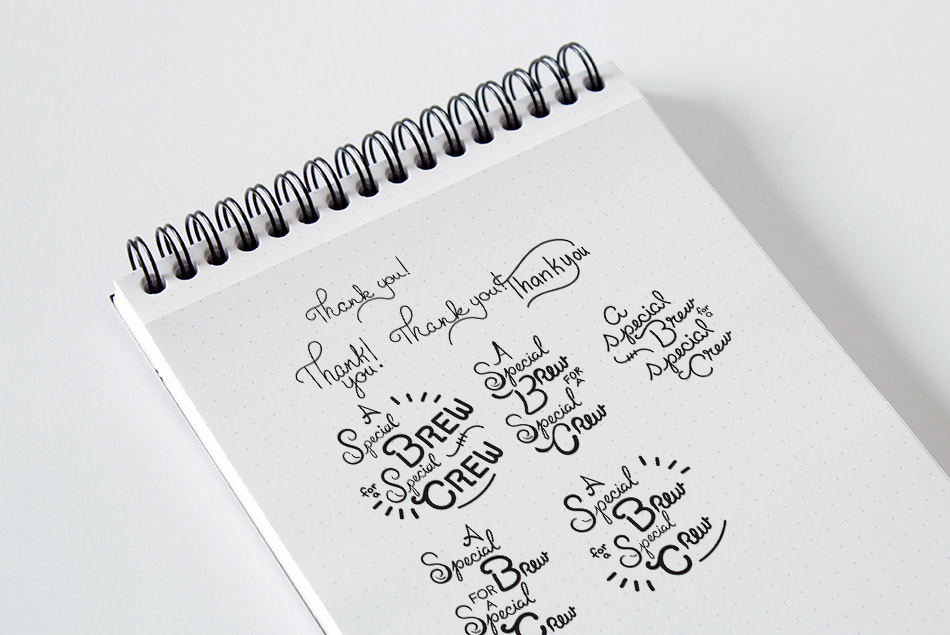 Thank you!
Thank you!
Thank you
Thank!
you!
A
Special
BREW
for
a
Special
CREW
A
Special
BRew
FOR
A
Special
CRew
a
special
Brew
for
a
special
Crew
A
Special
BRew
FOR
A
Special
CRew
A
Special
BRew
for
a
Special
CRew